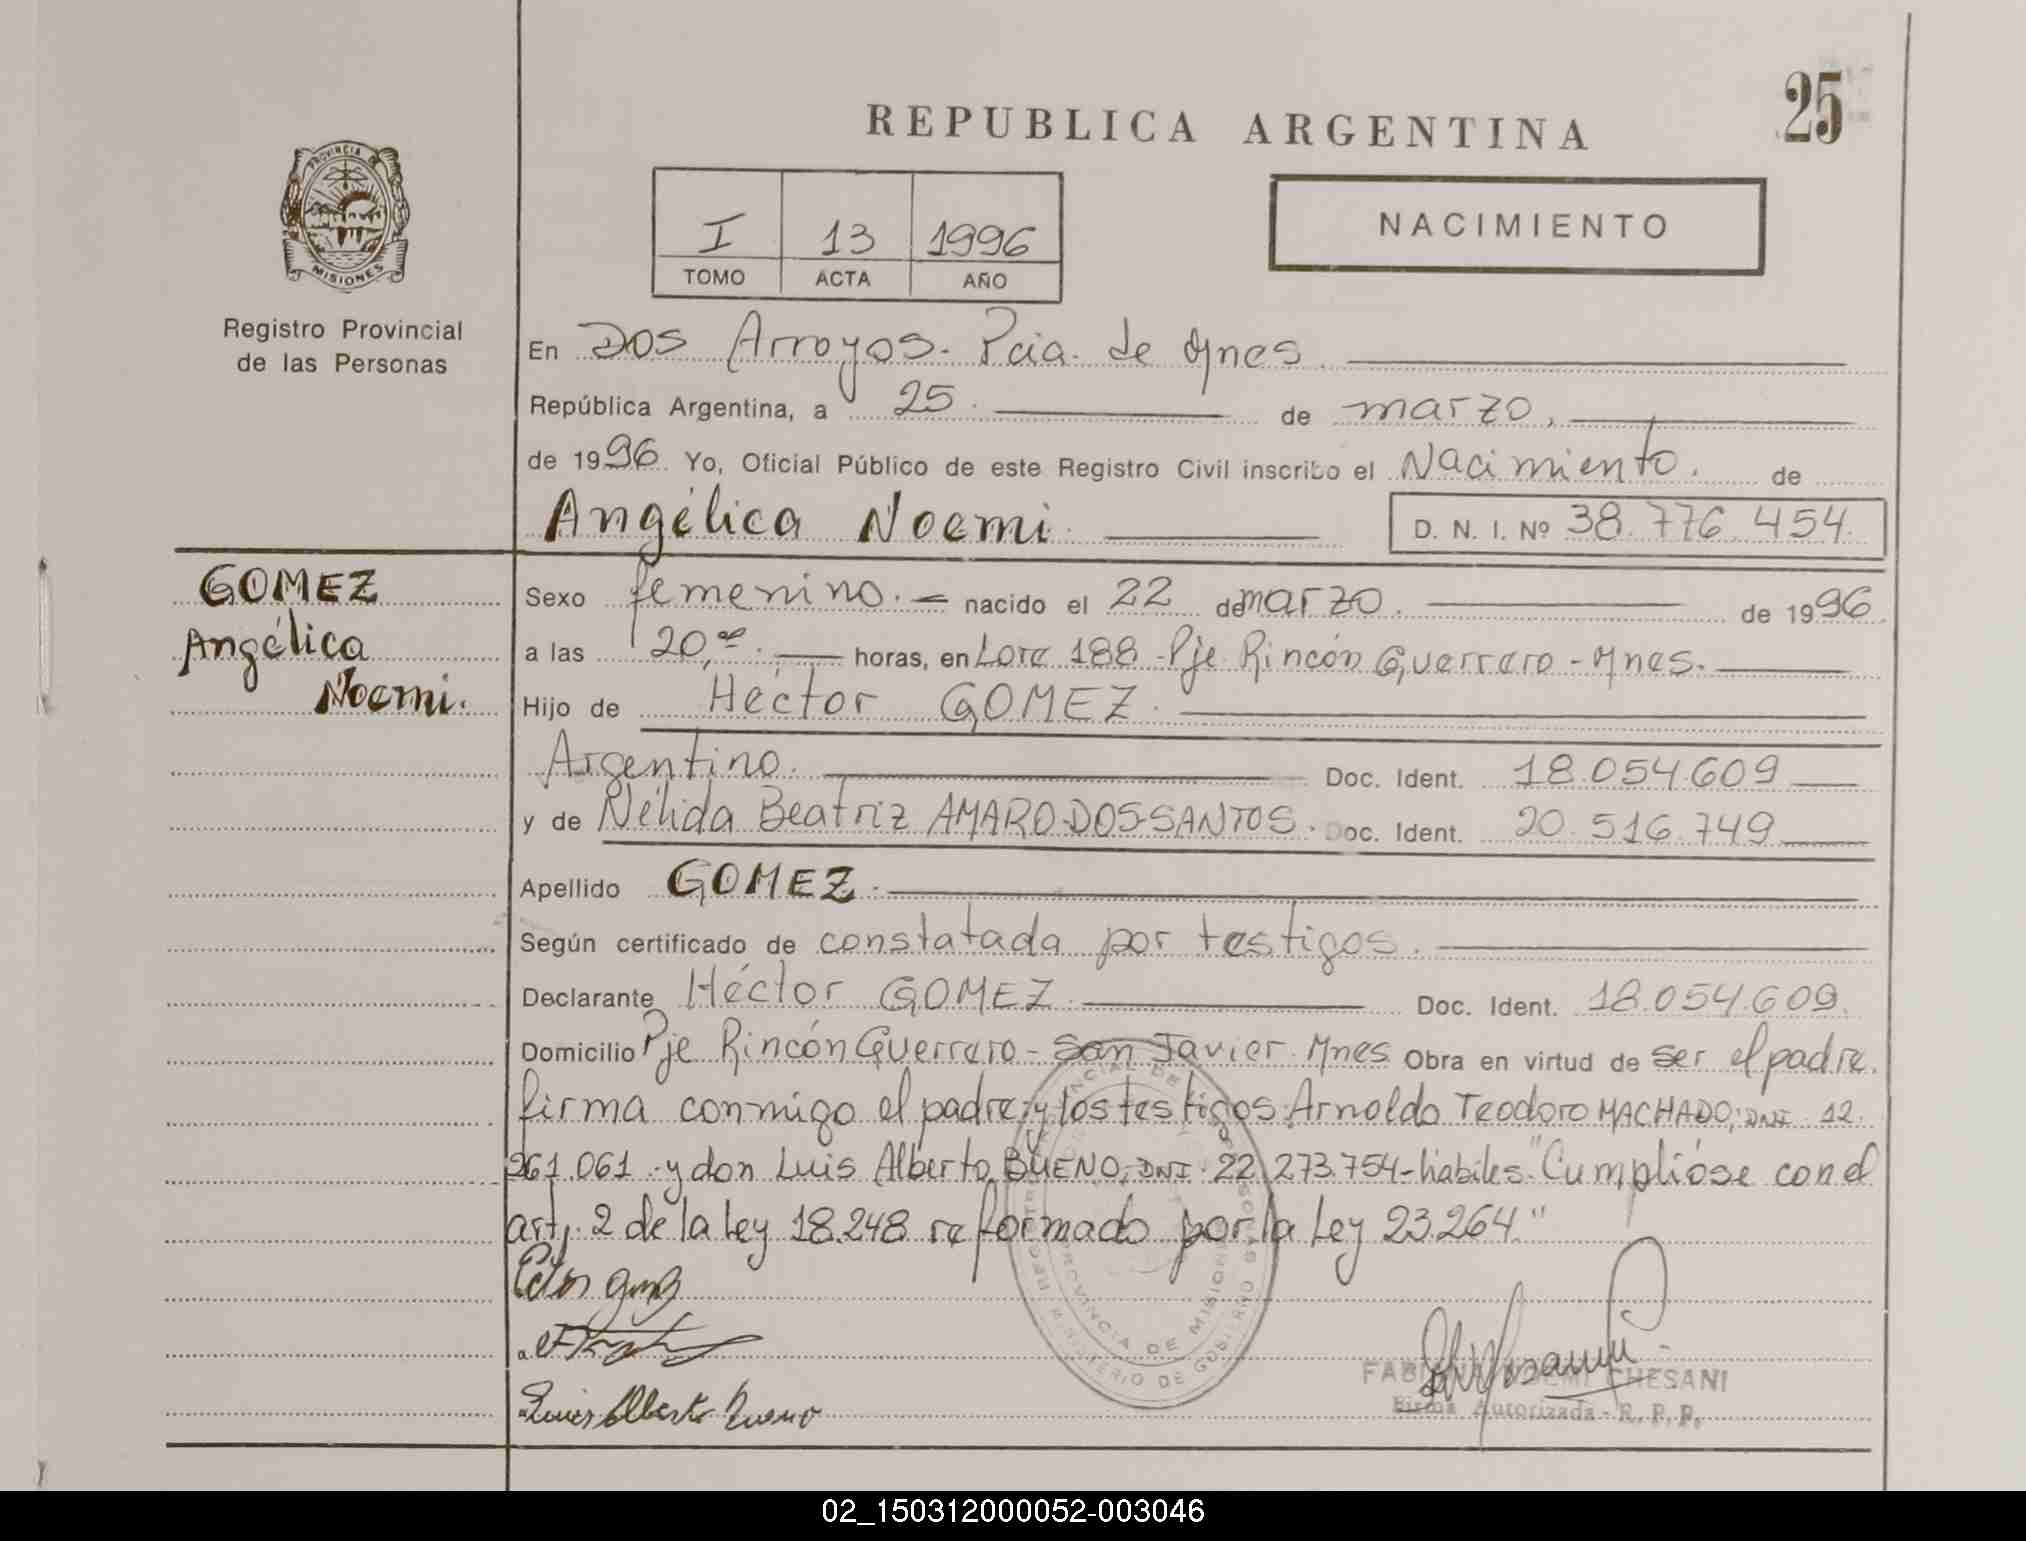 REPUBLICA ARGENTINA
25
PROVINCIA DE
MISIONES
Registro Provincial
de las Personas
I 13 1996
TOMO ACTA AÑO
NACIMIENTO
En Dos Arroyos. Pcia. de Mnes
República Argentina, a 25. de marzo,
de 1996 Yo, Oficial Público de este Registro Civil inscribo el Nacimiento. de
Angélica Noemi
D. N. I. Nº 38.776.454.
GOMEZ
Angélica
Noemi.
Sexo femenino.- nacido el 22 de marzo. de 1996
a las 20,00. horas, en Lote 188 - Pje Rincón Guerrero - Mnes.
Hijo de Héctor GOMEZ.
Argentino. Doc. Ident. 18.054.609
y de Nélida Beatriz AMARO DOS SANTOS. Doc. Ident. 20.516.749
Apellido GOMEZ.
Según certificado de constatada por testigos.
Declarante Héctor GOMEZ Doc. Ident. 18.054.609.
Domicilio Pje Rincón Guerrero - San Javier. Mnes Obra en virtud de ser el padre.
firma conmigo el padre y los testigos: Arnoldo Teodoro MACHADO, DNI 12.
261.061 y don Luis Alberto BUENO, DNI 22.273.754 - hábiles. "Cumplióse con el
art. 2 de la Ley 18.248 reformado por la Ley 23.264."
Luis Alberto Bueno
PROVINCIA DE MISIONES
MINISTERIO DE GOBIERNO
NOEMI CHESANI
Firma Autorizada - R. P. P.
02_150312000052-003046